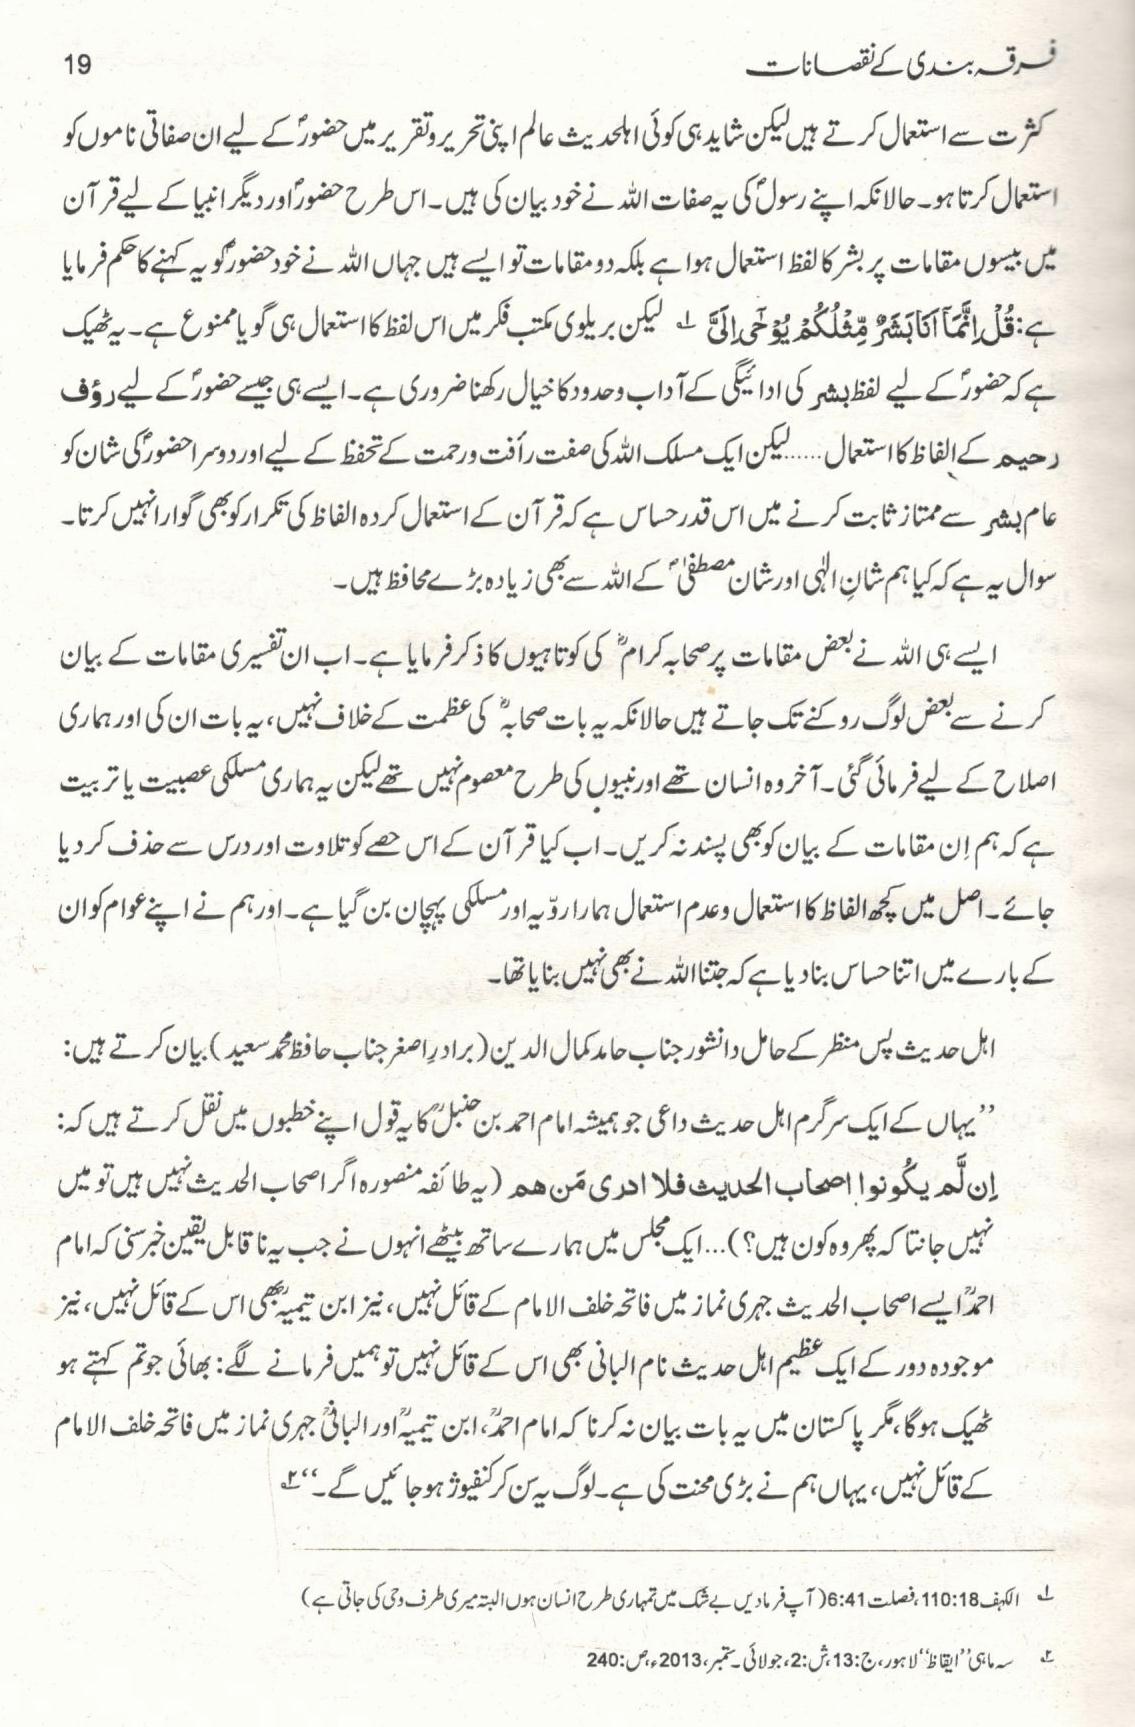 فرقہ بندی کے نقصانات 19
کثرت سے استعمال کرتے ہیں لیکن شاید ہی کوئی اہلحدیث عالم اپنی تحریر و تقریر میں حضورؐ کے لیے ان صفاتی ناموں کو
استعمال کرتا ہو۔ حالانکہ اپنے رسولؐ کی یہ صفات اللہ نے خود بیان کی ہیں۔ اس طرح حضورؐ اور دیگر انبیا کے لیے قرآن
میں بیسوں مقامات پر بشر کا لفظ استعمال ہوا ہے بلکہ دو مقامات تو ایسے ہیں جہاں اللہ نے خود حضورؐ کو یہ کہنے کا حکم فرمایا
ہے: قُلْ اِنَّمَآ اَنَا بَشَرٌ مِّثْلُكُمْ يُوْحٰٓى اِلَىَّ ۱؎ لیکن بریلوی مکتب فکر میں اس لفظ کا استعمال ہی گویا ممنوع ہے۔ یہ ٹھیک
ہے کہ حضورؐ کے لیے لفظ بشر کی ادائیگی کے آداب و حدود کا خیال رکھنا ضروری ہے۔ ایسے ہی جیسے حضورؐ کے لیے رؤف
رحیم کے الفاظ کا استعمال ...... لیکن ایک مسلک اللہ کی صفت رأفت و رحمت کے تحفظ کے لیے اور دوسرا حضورؐ کی شان کو
عام بشر سے ممتاز ثابت کرنے میں اس قدر حساس ہے کہ قرآن کے استعمال کردہ الفاظ کی تکرار کو بھی گوارا نہیں کرتا۔
سوال یہ ہے کہ کیا ہم شانِ الٰہی اور شان مصطفیٰؐ کے اللہ سے بھی زیادہ بڑے محافظ ہیں۔
ایسے ہی اللہ نے بعض مقامات پر صحابہ کرامؓ کی کوتاہیوں کا ذکر فرمایا ہے۔ اب ان تفسیری مقامات کے بیان
کرنے سے بعض لوگ روکنے تک جاتے ہیں حالانکہ یہ بات صحابہؓ کی عظمت کے خلاف نہیں، یہ بات ان کی اور ہماری
اصلاح کے لیے فرمائی گئی۔ آخر وہ انسان تھے اور نبیوں کی طرح معصوم نہیں تھے لیکن یہ ہماری مسلکی عصبیت یا تربیت
ہے کہ ہم اِن مقامات کے بیان کو بھی پسند نہ کریں۔ اب کیا قرآن کے اس حصے کو تلاوت اور درس سے حذف کر دیا
جائے۔ اصل میں کچھ الفاظ کا استعمال و عدم استعمال ہمارا رویّہ اور مسلکی پہچان بن گیا ہے۔ اور ہم نے اپنے عوام کو ان
کے بارے میں اتنا حساس بنا دیا ہے کہ جتنا اللہ نے بھی نہیں بنایا تھا۔
اہل حدیث پس منظر کے حامل دانشور جناب حامد کمال الدین (برادرِ اصغر جناب حافظ محمد سعید) بیان کرتے ہیں:
”یہاں کے ایک سرگرم اہل حدیث داعی جو ہمیشہ امام احمد بن حنبلؒ کا یہ قول اپنے خطبوں میں نقل کرتے ہیں کہ:
اِن لَّم یکُونوا اصحاب الحدیث فلا ادری مَن ھم (یہ طائفہ منصورہ اگر اصحاب الحدیث نہیں ہیں تو میں
نہیں جانتا کہ پھر وہ کون ہیں؟)... ایک مجلس میں ہمارے ساتھ بیٹھے انہوں نے جب یہ ناقابل یقین خبر سنی کہ امام
احمدؒ ایسے اصحاب الحدیث جہری نماز میں فاتحہ خلف الامام کے قائل نہیں، نیز ابن تیمیہؒ بھی اس کے قائل نہیں، نیز
موجودہ دور کے ایک عظیم اہل حدیث نام البانی بھی اس کے قائل نہیں تو ہمیں فرمانے لگے: بھائی جو تم کہتے ہو
ٹھیک ہوگا، مگر پاکستان میں یہ بات بیان نہ کرنا کہ امام احمدؒ، ابن تیمیہؒ اور البانیؒ جہری نماز میں فاتحہ خلف الامام
کے قائل نہیں، یہاں ہم نے بڑی محنت کی ہے۔ لوگ یہ سن کر کنفیوژ ہو جائیں گے۔“ ۲؎
۱؎ الکہف 110:18، فصلت 6:41 (آپ فرما دیں بے شک میں تمہاری طرح انسان ہوں البتہ میری طرف وحی کی جاتی ہے)
۲؎ سہ ماہی ”ایقاظ“ لاہور، ج:13، ش:2، جولائی۔ ستمبر، 2013ء، ص:240